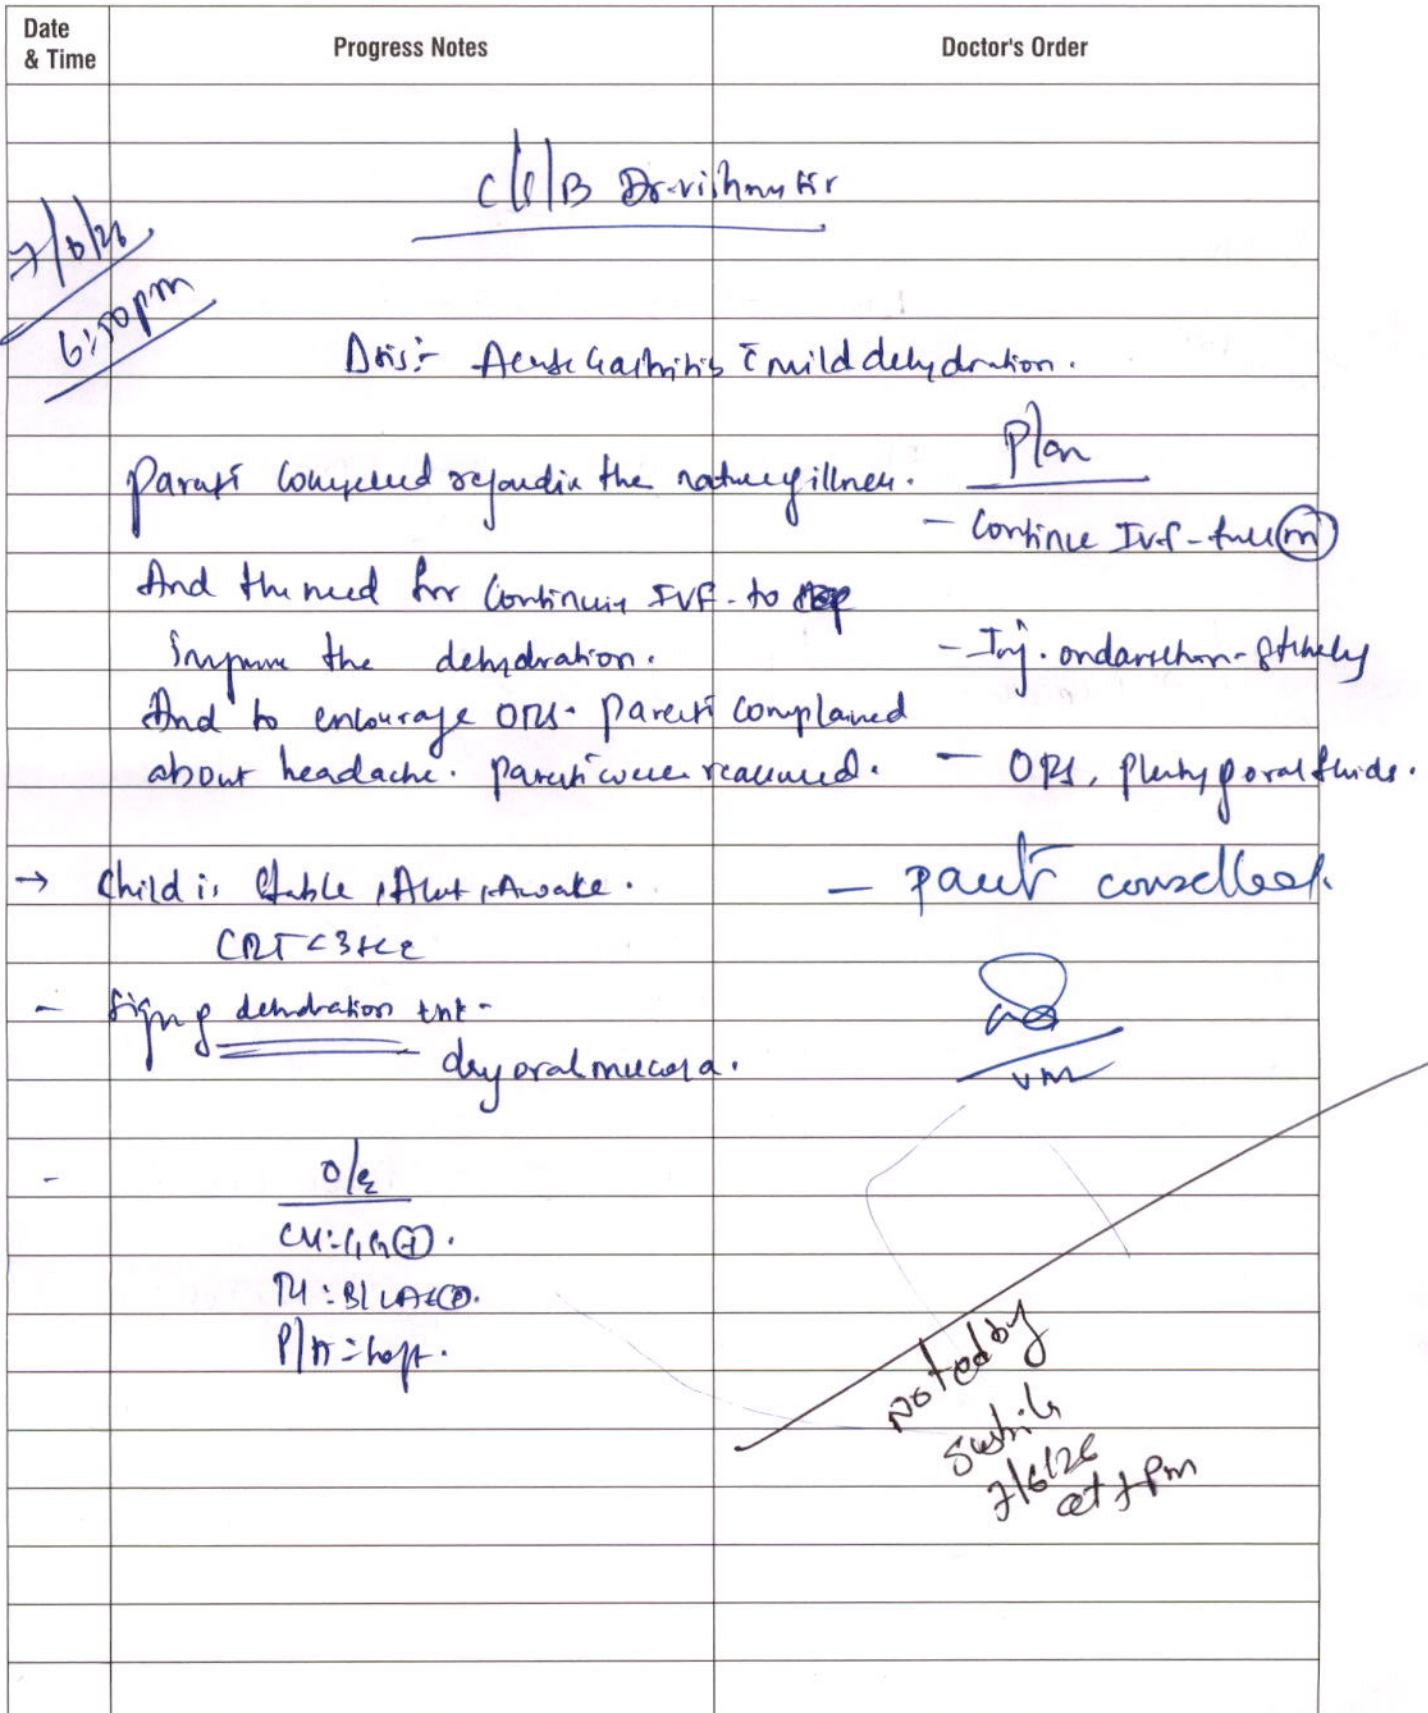 Date & Time
Progress Notes
Doctor's Order
C/S/B Dr. vishnu Kr
7/6/26
6:50pm
Acute Gastritis c̄ mild dehydration.
Parents regardin the nature of illness.
And the need for Continuin IVF - to
improve the dehydration.
And to encourage ORS. Parents complained
about headache. parents were reassured.
→ Child is Stable, Alert, Awake.
CRT < 3 sec
- Sign of dehydration
dry oral mucosa.
- O/E
P/A : Soft.
Plan
- Continue IVF - full (m)
- Inj. ondansetron -
- ORS, plenty of oral fluids.
- parent
vm
Noted by
7/6/26
at 7 Pm